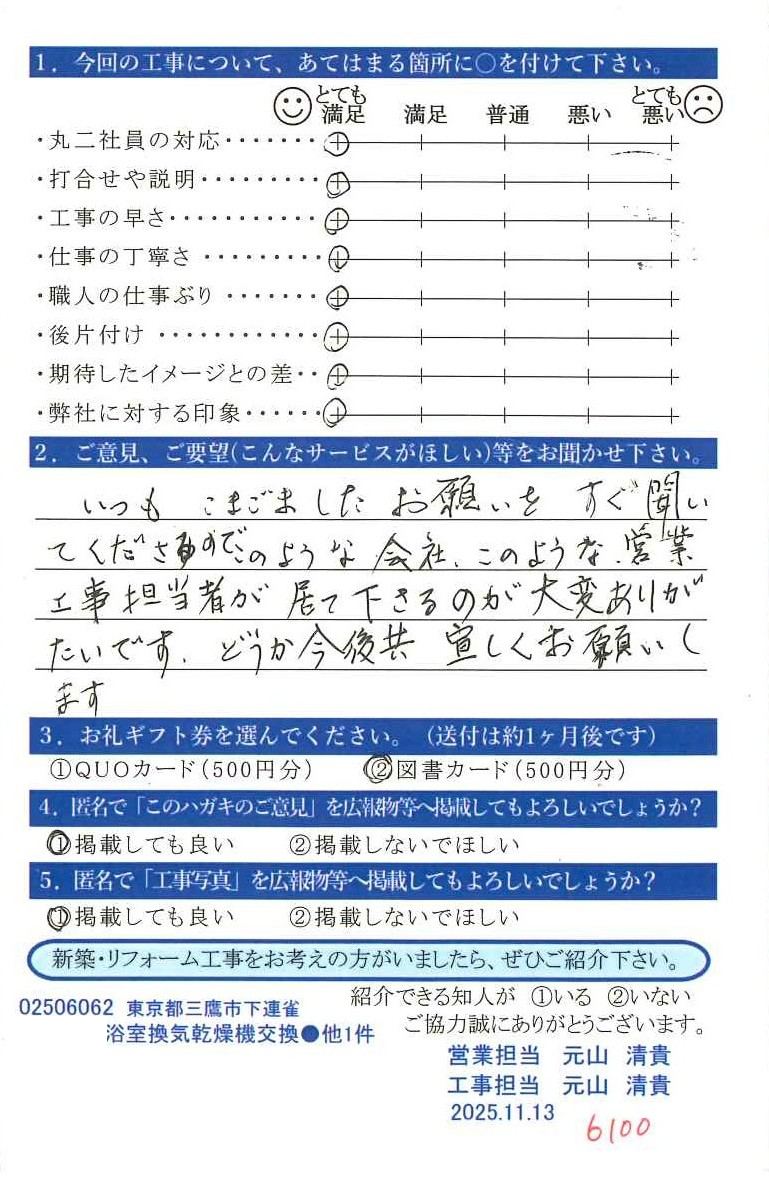 1. 今回の工事について、あてはまる箇所に○を付けて下さい。
とても満足 満足 普通 悪い とても悪い
・丸二社員の対応・・・・・・・
・打合せや説明・・・・・・・・・
・工事の早さ・・・・・・・・・・・
・仕事の丁寧さ・・・・・・・・・
・職人の仕事ぶり・・・・・・・
・後片付け・・・・・・・・・・・・
・期待したイメージとの差・・
・弊社に対する印象・・・・・・
2. ご意見、ご要望(こんなサービスがほしい)等をお聞かせ下さい。
いつも こまごましたお願いを すぐ聞い
てくださるのでこのような会社、このような営業
工事担当者が居て下さるのが大変ありが
たいです。どうか今後共 宜しくお願いし
ます
3. お礼ギフト券を選んでください。(送付は約1ヶ月後です)
①QUOカード(500円分) ②図書カード(500円分)
4. 匿名で「このハガキのご意見」を広報物等へ掲載してもよろしいでしょうか?
①掲載しても良い ②掲載しないでほしい
5. 匿名で「工事写真」を広報物等へ掲載してもよろしいでしょうか?
①掲載しても良い ②掲載しないでほしい
新築・リフォーム工事をお考えの方がいましたら、ぜひご紹介下さい。
紹介できる知人が ①いる ②いない
02506062 東京都三鷹市下連雀
ご協力誠にありがとうございます。
浴室換気乾燥機交換●他1件
営業担当 元山 清貴
工事担当 元山 清貴
2025.11.13
6100